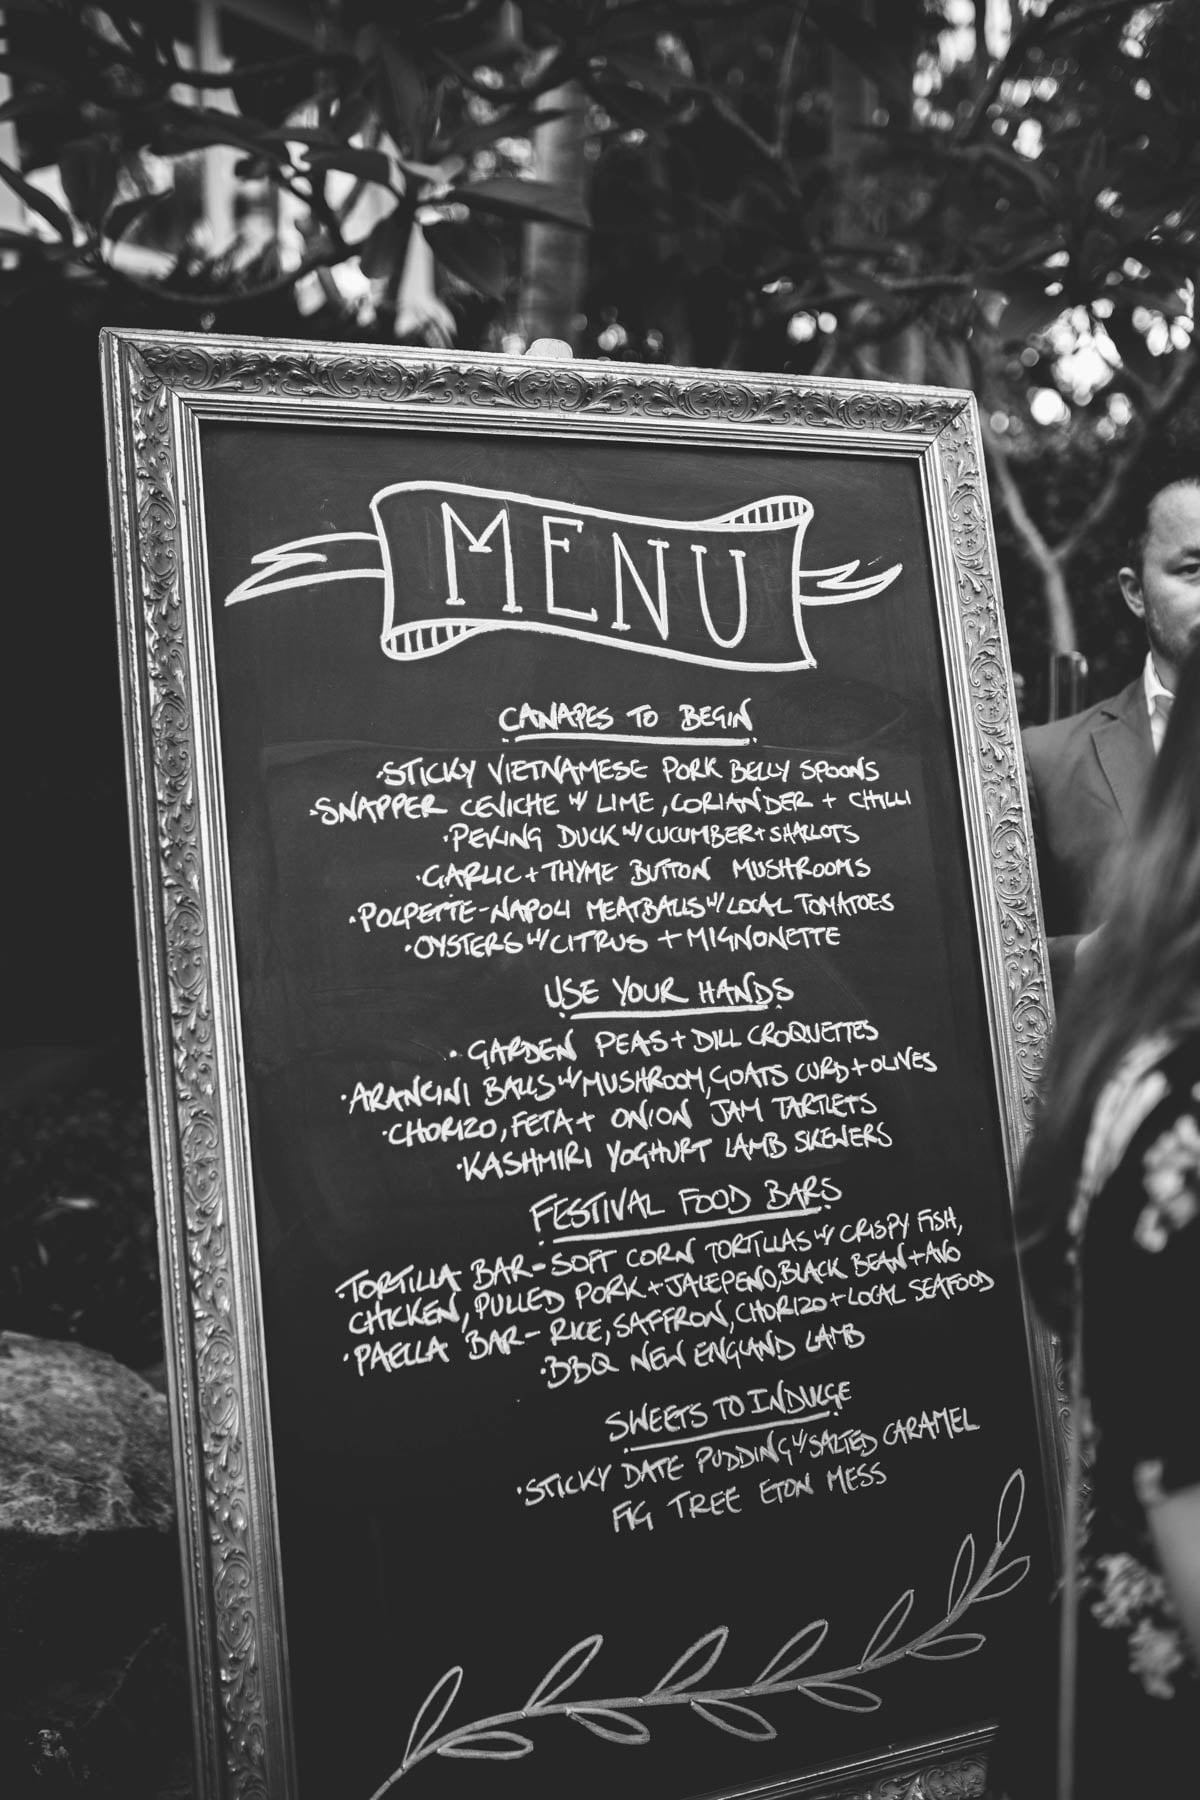 MENU
CANAPES TO BEGIN
·STICKY VIETNAMESE PORK BELLY SPOONS
·SNAPPER CEVICHE W/ LIME, CORIANDER + CHILLI
·PEKING DUCK W/ CUCUMBER + SHALLOTS
·GARLIC + THYME BUTTON MUSHROOMS
·POLPETTE-NAPOLI MEATBALLS W/ LOCAL TOMATOES
·OYSTERS W/ CITRUS + MIGNONETTE
USE YOUR HANDS
·GARDEN PEAS + DILL CROQUETTES
·ARANCINI BALLS W/ MUSHROOM, GOATS CURD + OLIVES
·CHORIZO, FETA + ONION JAM TARTLETS
·KASHMIRI YOGHURT LAMB SKEWERS
FESTIVAL FOOD BARS
·TORTILLA BAR-SOFT CORN TORTILLAS W/ CRISPY FISH,
CHICKEN, PULLED PORK + JALEPENO, BLACK BEAN + AVO
·PAELLA BAR- RICE, SAFFRON, CHORIZO + LOCAL SEAFOOD
·BBQ NEW ENGLAND LAMB
SWEETS TO INDULGE
·STICKY DATE PUDDING W/ SALTED CARAMEL
FIG TREE ETON MESS